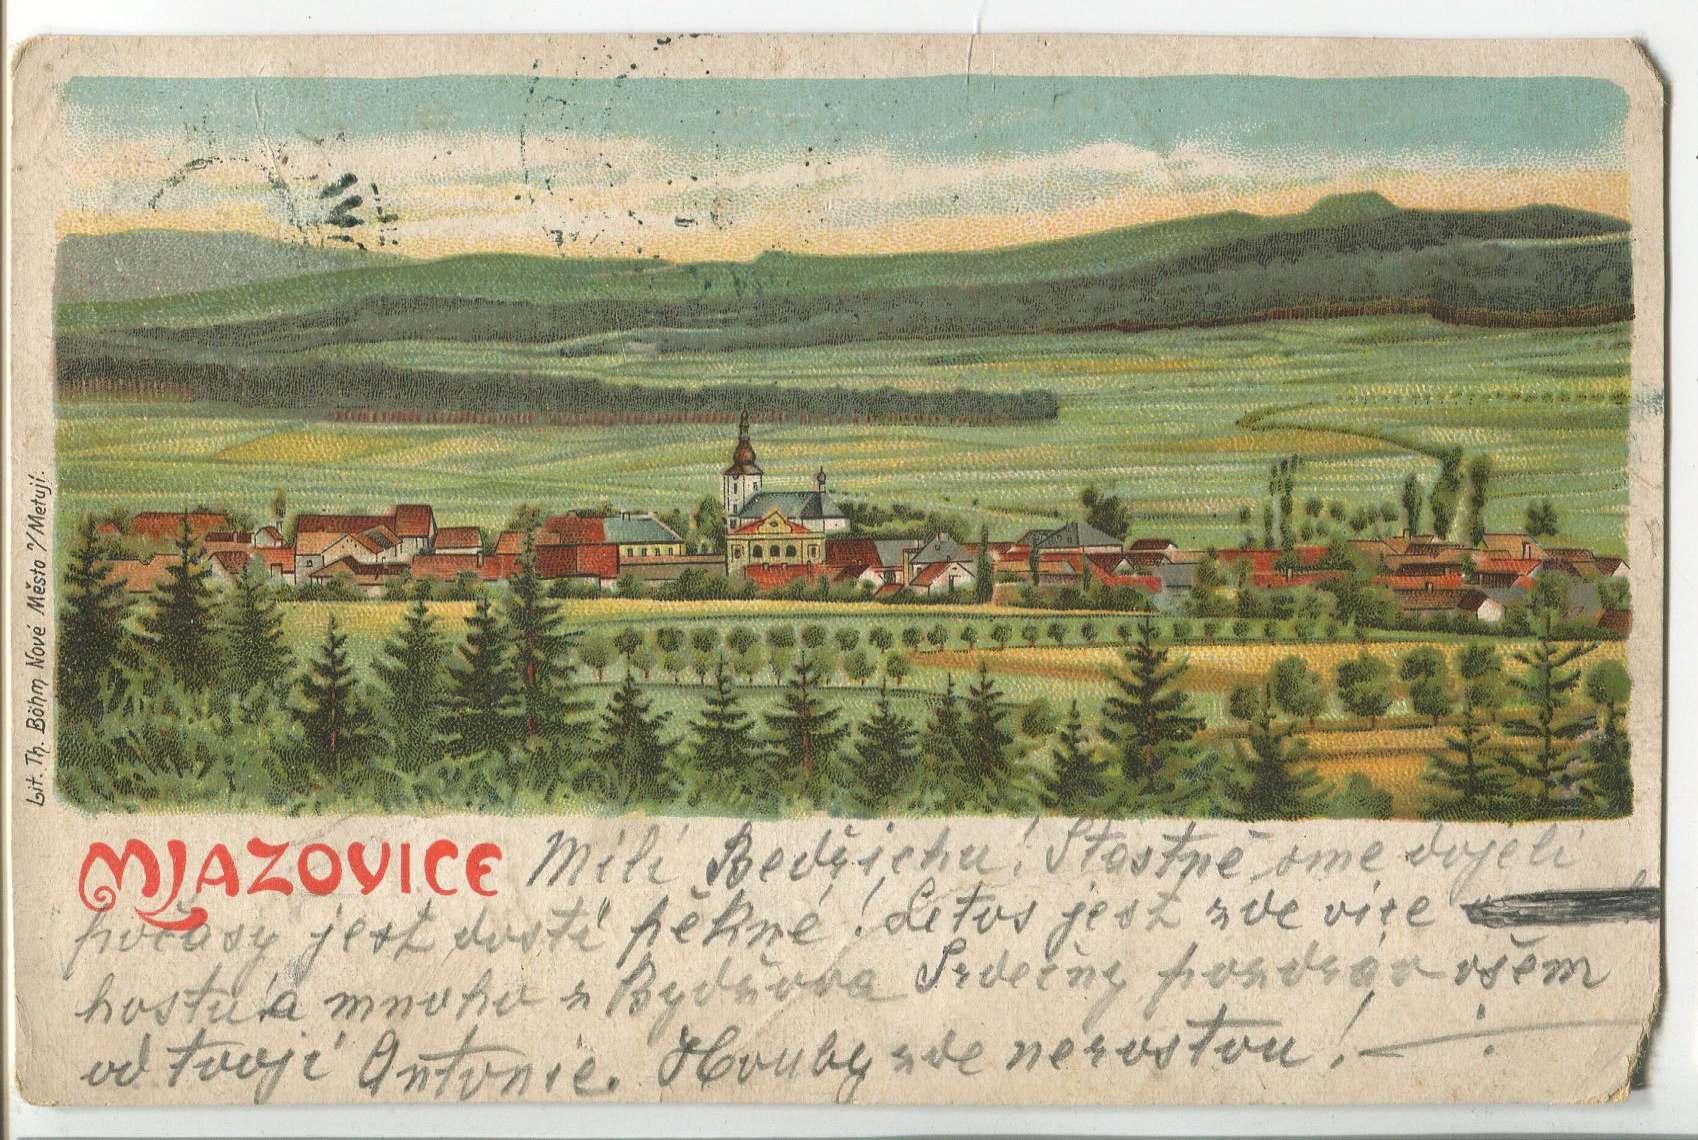 Lit. Th. Böhm Nové Město ?/Metují.
MJAZOVICE
Milí Bedřichu! Stastně sme dojeli
počasy jest dosti pěkné! Letos jest zde více
hostu a mnoho z Bydžova Srdečny pozdrav všem
od tvojí Antonie. Houby zde nerostou!